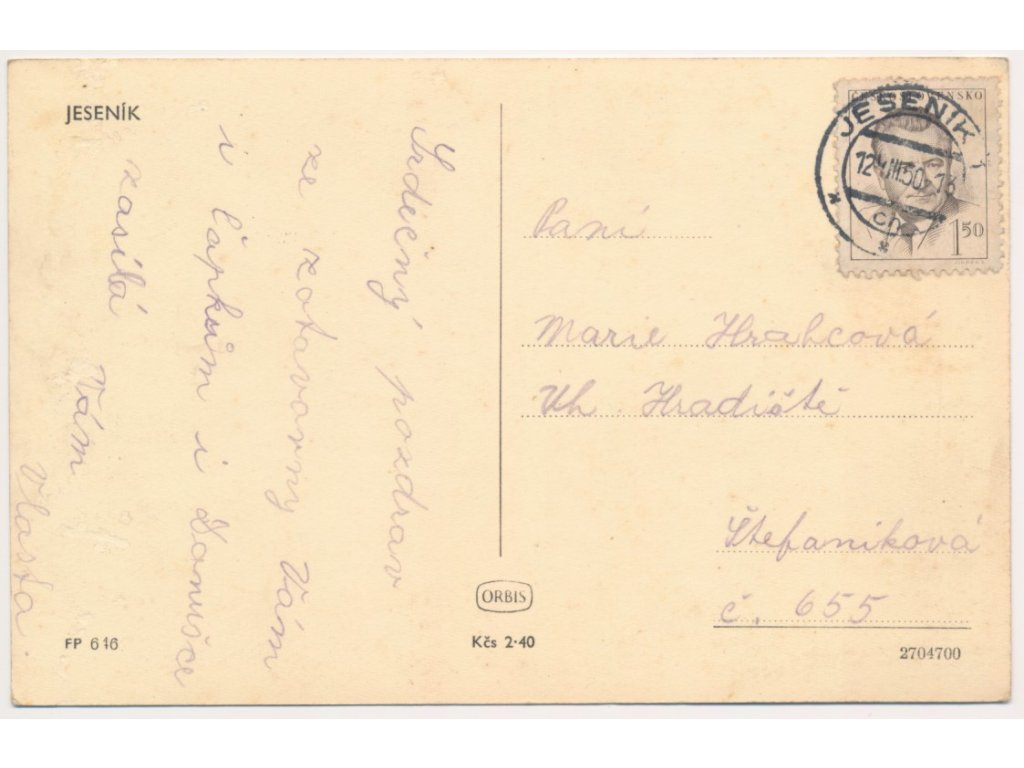 JESENÍK
Srdečný pozdrav
ze zotavovny Vám
i Čápkům i Danušce
zasílá
Vám
Vlasťa.
FP 646
ORBIS
Kčs 2·40
ČESKOSLOVENSKO
JESENÍK 1
12.III.50-16
1 50
Paní
Marie Hrabcová
Uh. Hradiště
Štefaniková
č. 655
2704700